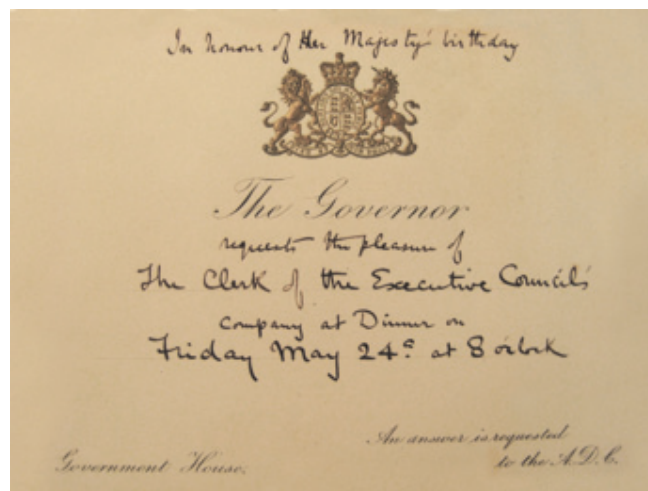 In honour of Her Majesty's birthday
The Governor
requests the pleasure of
The Clerk of the Executive Council's
company at Dinner on
Friday May 24th at 8 o'clock
An answer is requested
Government House.
to the A.D.C.